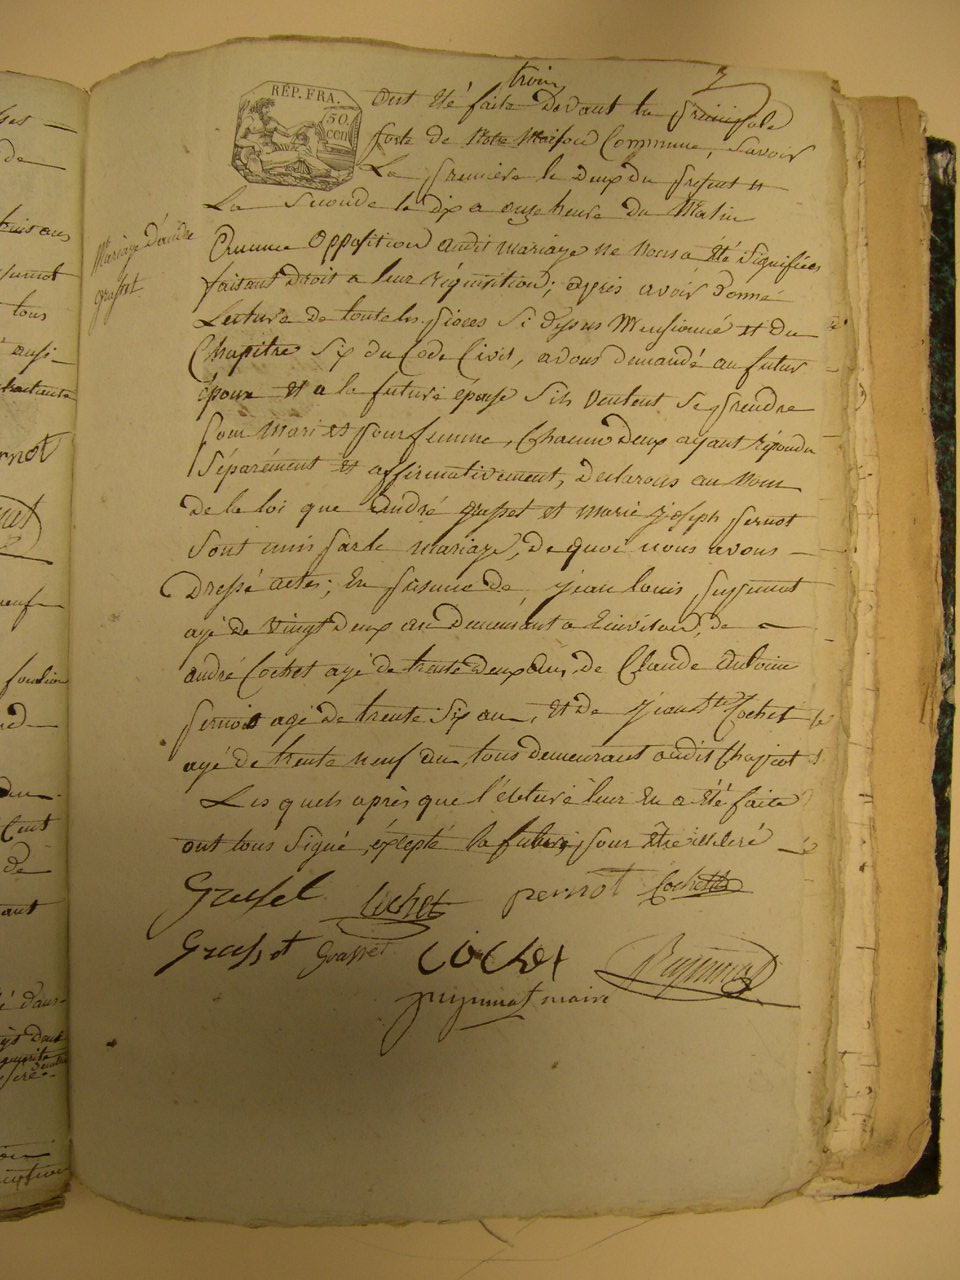 trois 3
RÉP. FRA.
50
CEN
ont été faite devant la principale
porte de Notre Maison Commune, Savoir
La premiere le deux du present
La Seconde le dix a onze heure du Matin
Mariage d'andré
grasset
Aucune opposition audit mariage ne nous a été Signifiée
faisant Droit a leur réquisition; après avoir donné
Lecture de toute les pieces Si dessus Mensionné et du
Chapitre Six du Code Civil, avons demandé au futur
époux et a la future épouse S'ils veulent Se prendre
pour Mari et pour femme, Chacun Deux ayant répondu
Séparément et affirmativement, declarons au Nom
de la loi que andré grasset et marie joseph pernot
Sont unis par le mariage, de quoi nous avons
Dressé acte; En présence de jean louis puginnot
agé de vingt deux an demeurant a de
andré Cochet agé de trente deux ans, de Claude antoine
pernot agé de trente Six an, et de jean Bte Cochet
agé de trente neuf an, tous demeurant audit
Les quels après que l'écture leur En a été faite
ont tous Signé, éxlepté la future, pour être illeteré
Grasset Cochet pernot Cochet
Grasset Grasset COCHet
maire